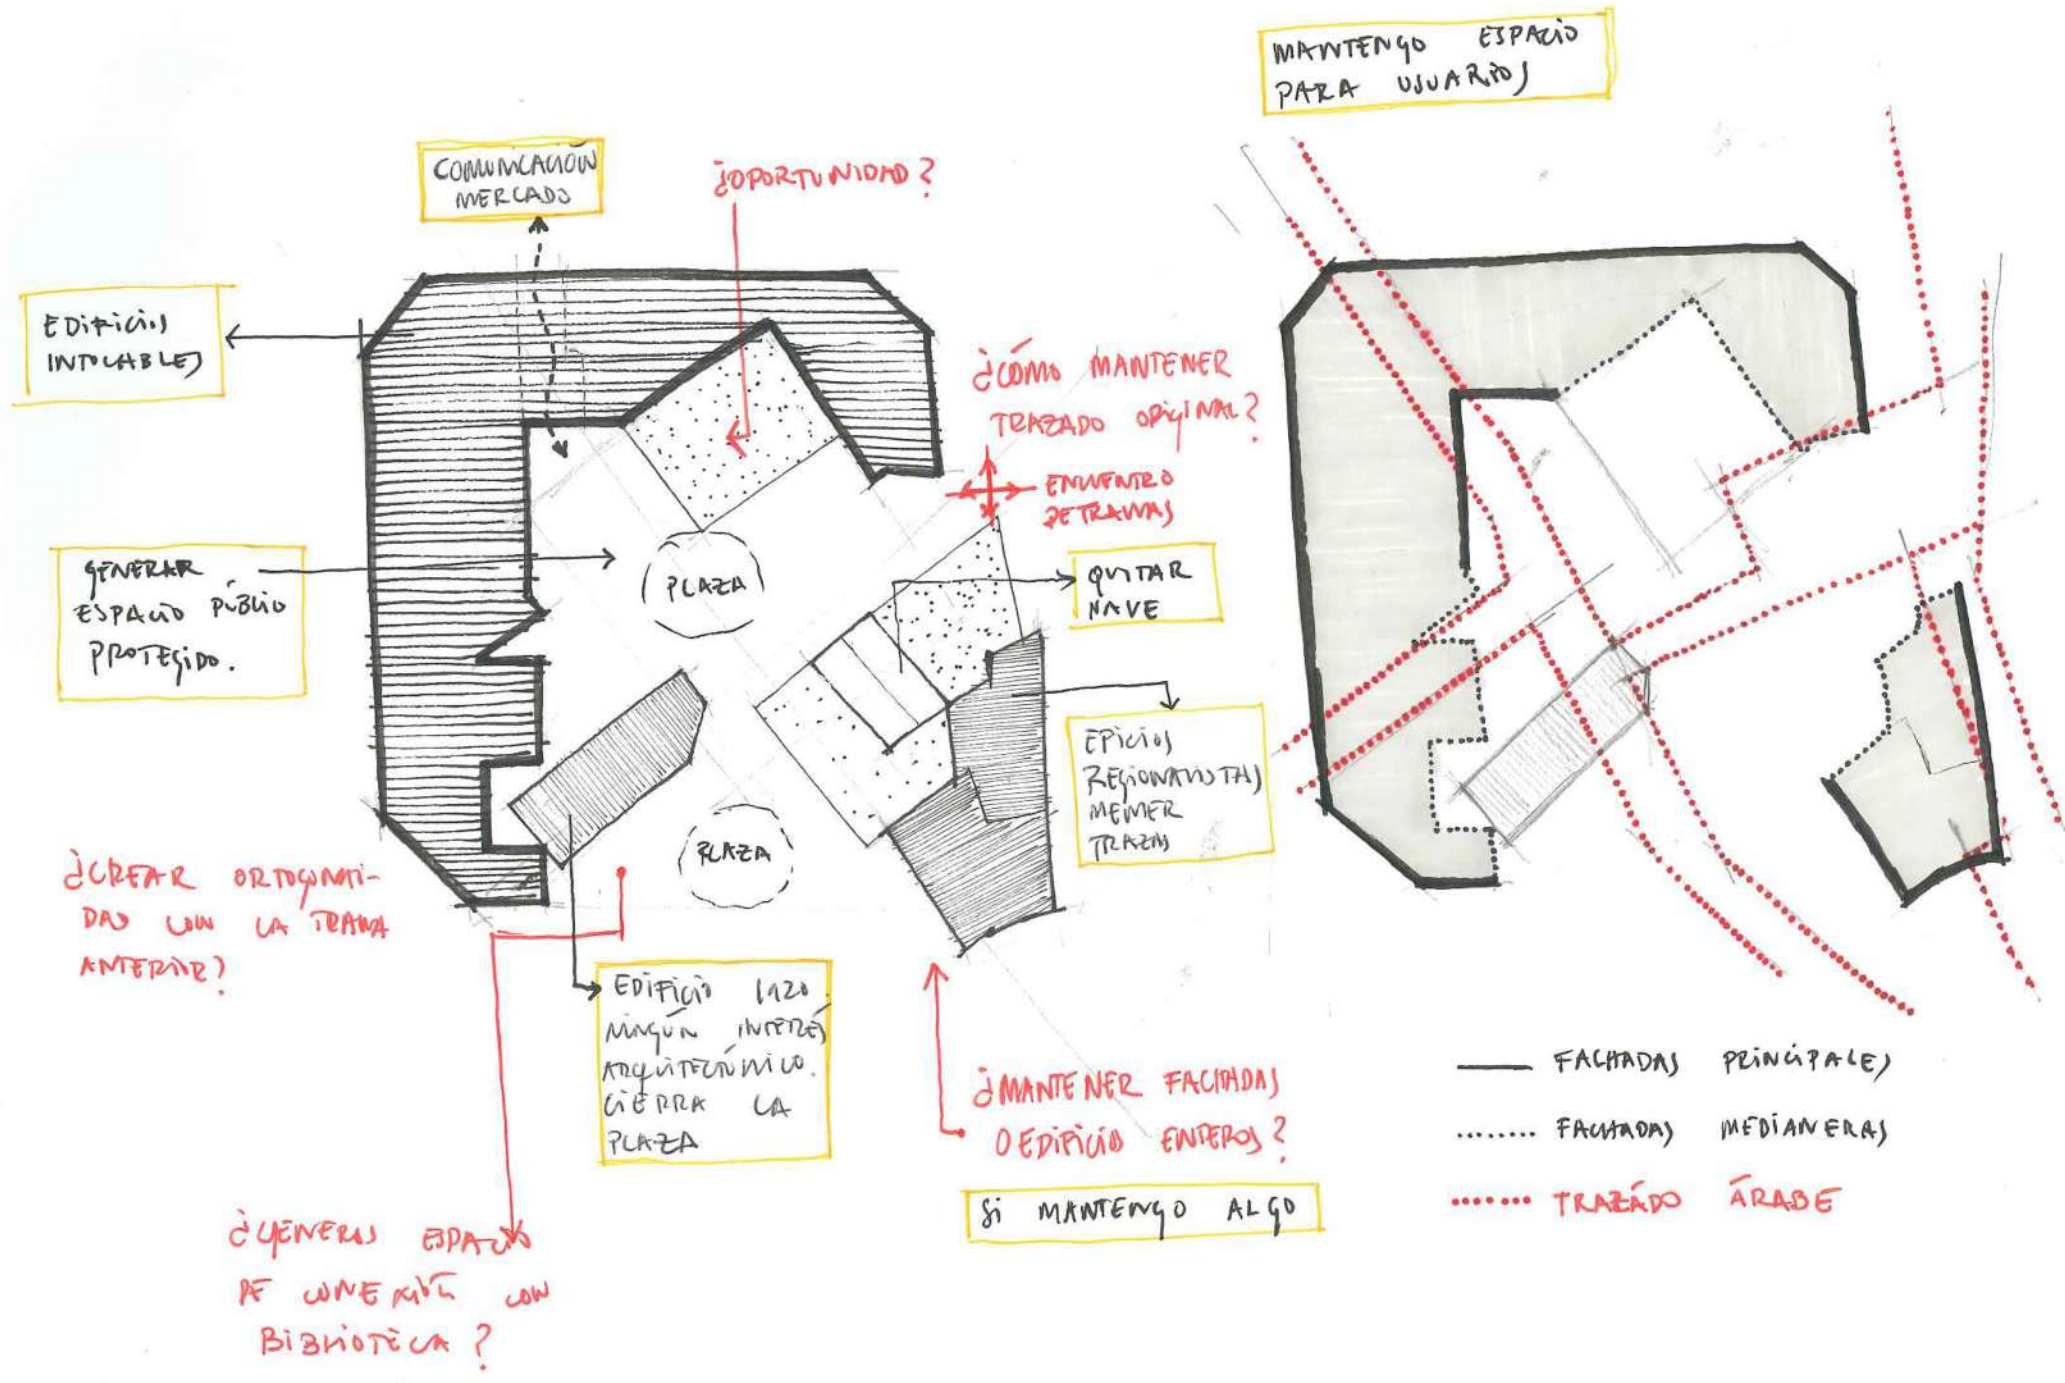 MANTENGO ESPACIO
PARA USUARIOS
COMUNICACIÓN
MERCADO
¿OPORTUNIDAD?
EDIFICIOS
INTOCABLES
¿CÓMO MANTENER
TRAZADO ORIGINAL?
ENCUENTRO
DE TRAMAS
GENERAR
ESPACIO PÚBLIO
PROTEGIDO.
PLAZA
QUITAR
NAVE
EDICIOS
REGIONALISTAS
TRAZAS
PLAZA
¿CREAR ORTOGONALI-
DAD CON LA TRAMA
ANTERIOR?
EDIFICIO 1920.
NINGÚN INTERÉS
ARQUITECTÓNICO.
CIERRA LA
PLAZA
¿MANTENER FACHADAS
O EDIFICIOS ENTEROS?
SI MANTENGO ALGO
¿GENERAS ESPACIO
DE CONEXIÓN CON
BIBLIOTECA?
FACHADAS PRINCIPALES
FACHADAS MEDIANERAS
TRAZÁDO ÁRABE